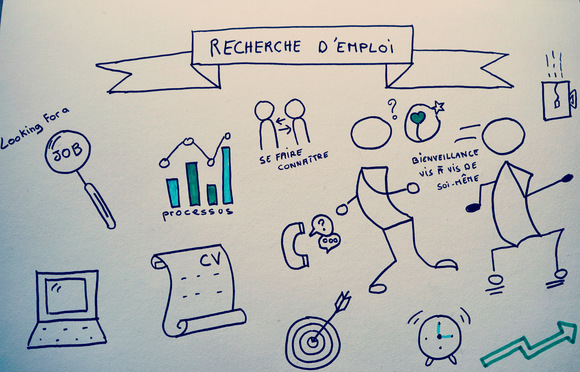 RECHERCHE D'EMPLOI
Looking For a
JOB
processus
SE FAIRE
CONNAÎTRE
?
BIENVEILLANCE
VIS À VIS DE
SOI-MÊME
?
...
CV